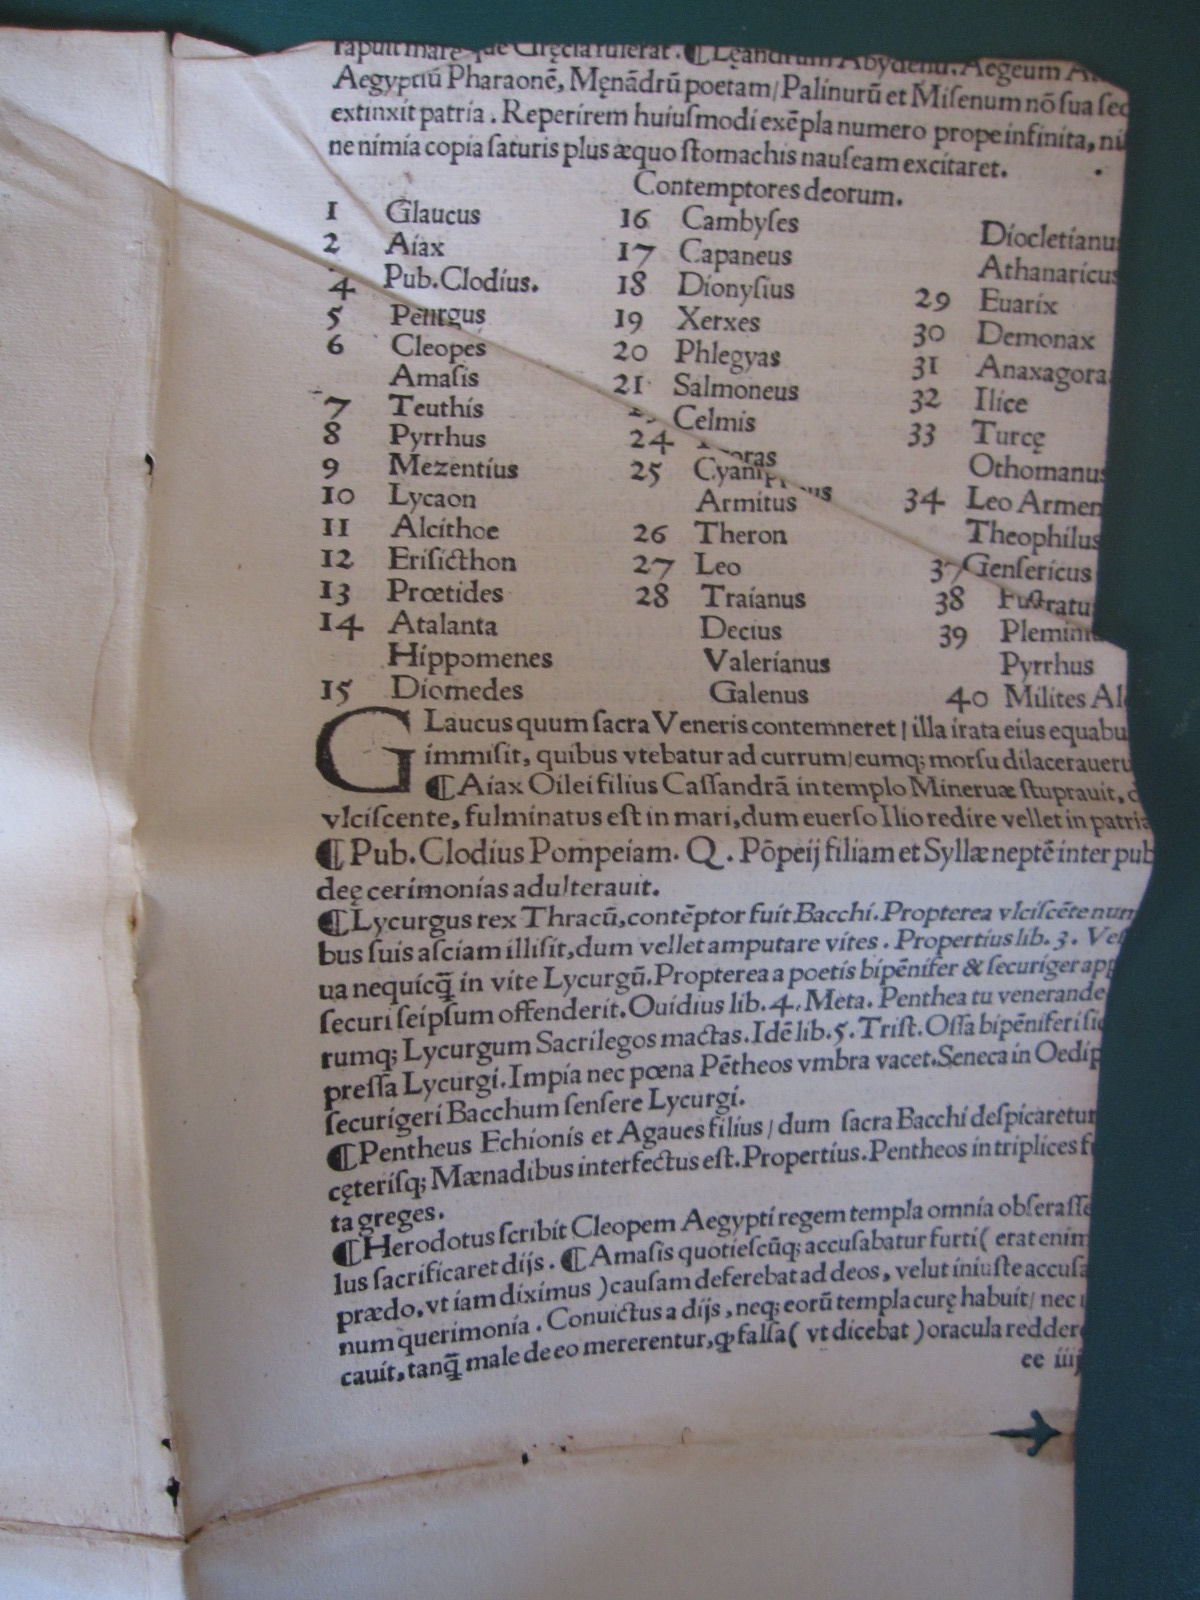 rapuit mare que Gręcia tulerat. ¶ Lęandrum Abydenū. Aegeum
Aegyptiū Pharaonē, Męnādrū poetam/ Palinurū et Misenum nō sua sed
extinxit patria. Reperirem huiusmodi exēpla numero prope infinita,
ne nimia copia saturis plus æquo stomachis nauseam excitaret.
Contemptores deorum.
1 Glaucus
2 Aiax
4 Pub. Clodius.
5
6 Cleopes
Amasis
7 Teuthis
8 Pyrrhus
9 Mezentius
10 Lycaon
11 Alcithoe
12 Erisicthon
13 Prœtides
14 Atalanta
Hippomenes
15 Diomedes
16 Cambyses
17 Capaneus
18 Dionysius
19 Xerxes
20 Phlegyas
21 Salmoneus
Celmis
24
25
Armitus
26 Theron
27 Leo
28 Traianus
Decius
Valerianus
Galenus
Diocletianus
Athanaricus
29 Euarix
30 Demonax
31 Anaxagora
32 Ilice
33 Turcę
Othomanus
34 Leo Armen
Theophilus
37 Gensericus
38
39 Plemin
Pyrrhus
40 Milites Al
Glaucus quum sacra Veneris contemneret / illa irata eius equabu
immisit, quibus vtebatur ad currum/ eumq; morsu dilaceraueru
¶ Aiax Oilei filius Cassandrā in templo Mineruæ stuprauit,
vlciscente, fulminatus est in mari, dum euerso Ilio redire vellet in patria
¶ Pub. Clodius Pompeiam. Q. Pōpeij filiam et Syllæ neptē inter pub
deę cerimonias adulterauit.
¶ Lycurgus rex Thracū, contēptor fuit Bacchi. Propterea vlciscēte num
bus suis asciam illisit, dum vellet amputare vites. Propertius lib. 3. Ves
ua nequicq̄ in vite Lycurgū. Propterea a poetis bipēnifer & securiger app
securi seipsum offenderit. Ouidius lib. 4. Meta. Penthea tu venerande
rumq; Lycurgum Sacrilegos mactas. Idē lib. 5. Trist. Ossa bipēniferi sic
pressa Lycurgi. Impia nec pœna Pētheos vmbra vacet. Seneca in Oedip
securigeri Bacchum sensere Lycurgi.
¶ Pentheus Echionis et Agaues filius / dum sacra Bacchi despicaretur
cęterisq; Mænadibus interfectus est. Propertius. Pentheos in triplices f
ta greges.
¶ Herodotus scribit Cleopem Aegypti regem templa omnia obserasse
lus sacrificaret dijs. ¶ Amasis quotiescūq; accusabatur furti ( erat enim
prædo, vt iam diximus ) causam deferebat ad deos, velut iniuste accusa
num querimonia. Conuictus a dijs, neq; eorū templa curę habuit/ nec
cauit, tanq̄ male de eo mererentur, ꝙ falsa ( vt dicebat ) oracula redder
ee iiij